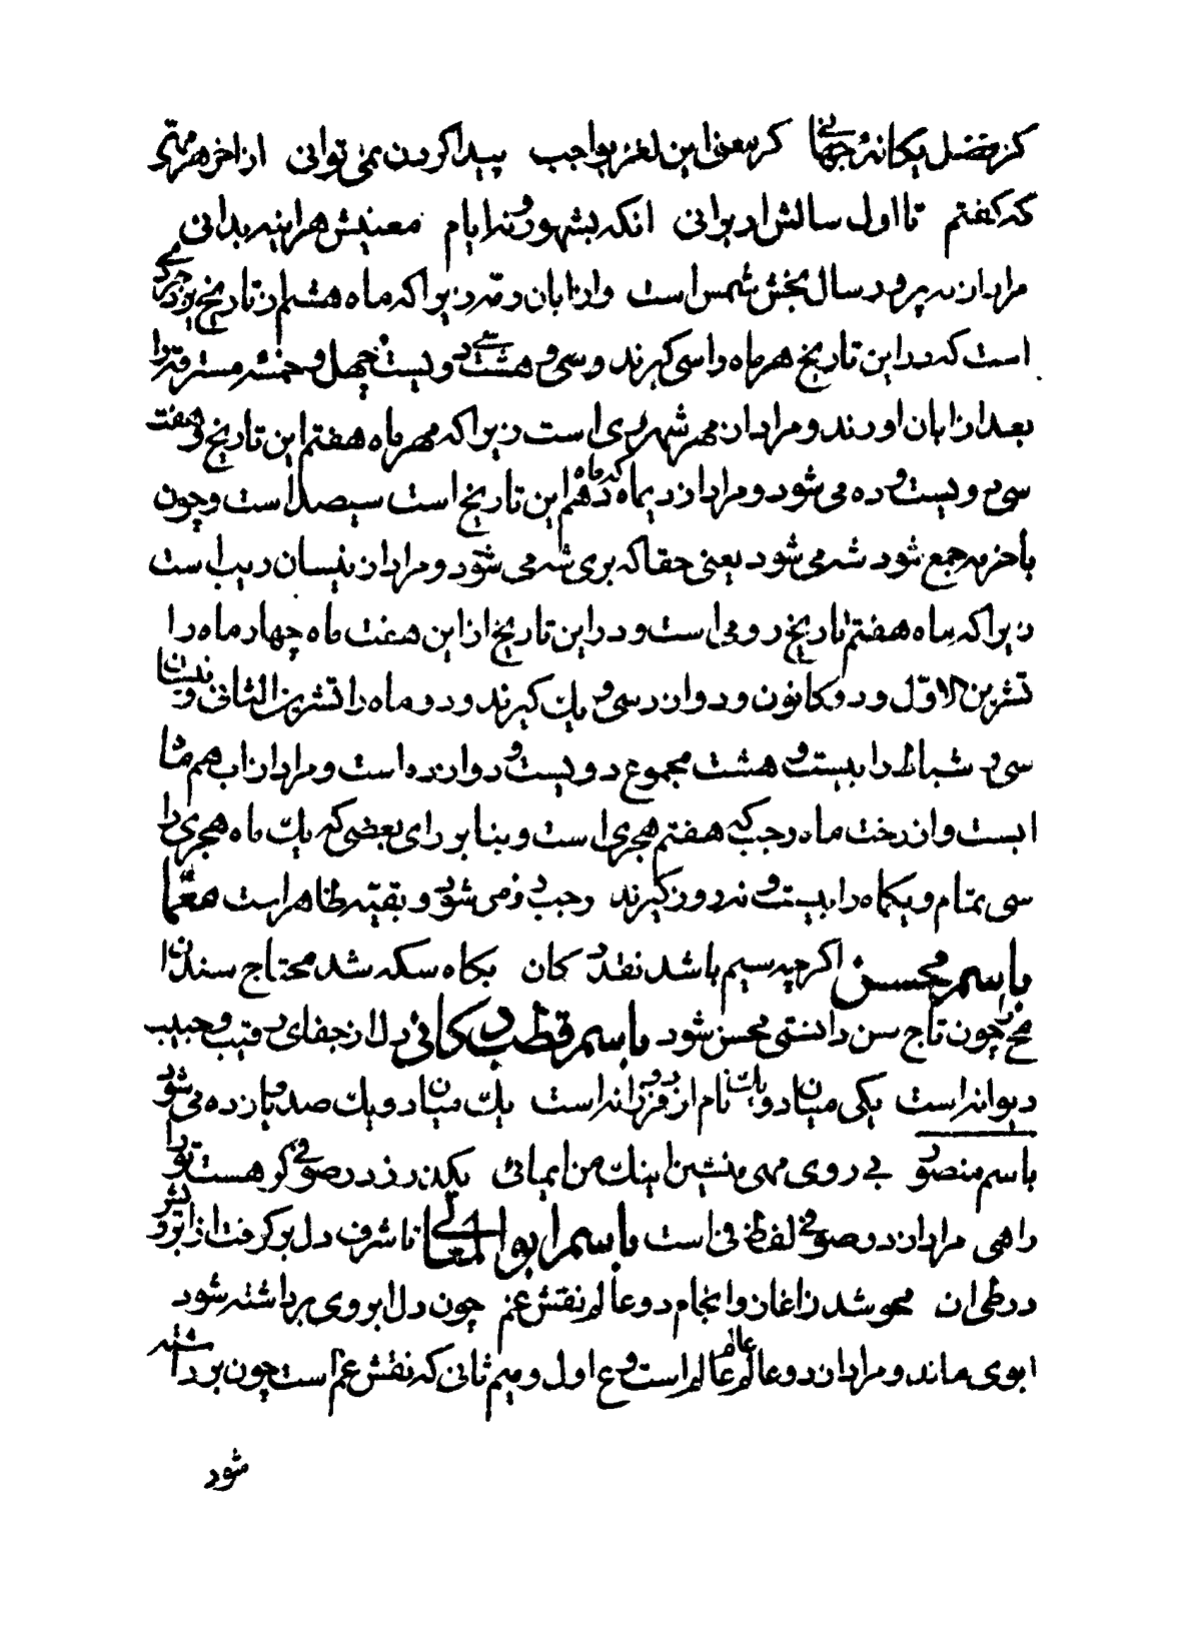 کز فضل یکانهٔ جهانی کر معنی این لغز بواجب پیدا کردن نمی توانی از اخر هر مهی
که کفتم تا اول سالش ار برانی انکه بشهور و نه ایام معنیش هراینه بدانی
مراد از سال بخش شمس است واز ابان زیرا که ماه هشتم از تاریخ یزدجردی
است که در این تاریخ هر ماه را سی کیرند و سی و هشت دویست و چهل و خمسه مسترقه را
بعد از ابان اورند و مراد از مهر شهر ری است زیرا که مهر ماه هفتم این تاریخ و هفت
سی دویست و ده می شود و مراد از دیماه که ماه دهم این تاریخ است سیصد است و چون
با جمع شود می شود یعنی حقا که بری می شود و مراد از نیسان ریب است
زیرا که ماه هفتم تاریخ رومی است و در این تاریخ از این هفت ماه چهار ماه را
تشرین الاول و دو کانون و دو اذر سی و یک کیرند و دو ماه را تشرین الثانی و نیسان
سی و شباط را بیست و هشت مجموع دویست و دوازده است و مراد از اب هم
ابست و از رخت ماه رجب که هفتم هجری است و بنا بر رای بعضی که یک ماه هجری را
سی تمام و یکماه را بیست و نه روز کیرند رجب می شود و بقیه ظاهر است معما
باسم محسن اکرچه سیم باشد نقد کان بکاه سکه شد محتاج سندان
مح را چون تاج سن دانستی محسن شود باسم قطب کانی دلا از جفای رقیب و حبیب
دیوانه است یکی میان دو یک نام از دو فرزانه است یک میان دو یک صد و یازده می شود
باسم منصور بی روی مهی منشین اینک من ایمائی یکذر ز در صوفی کر هست تو را
راهی مراد از در صوفی لفظ فی است باسم ابو المعالی تا شرف دل بر کرفت از ابرو
در طی ان محو شد ز اغاز و انجام دو عالم نقش غم چون دل ابروی برداشته شود
ابوی ماند و مراد از دو عالم عالم عالم است و ع اول و میم ثانی که نقش غم است چون برداشته
شود